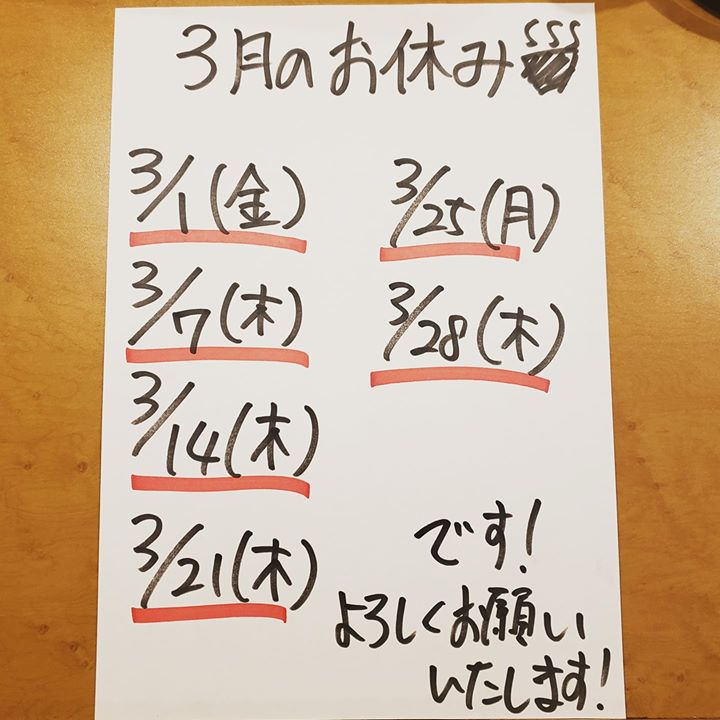 3月のお休み
3/1(金)
3/7(木)
3/14(木)
3/21(木)
3/25(月)
3/28(木)
です!
よろしくお願い
いたします!